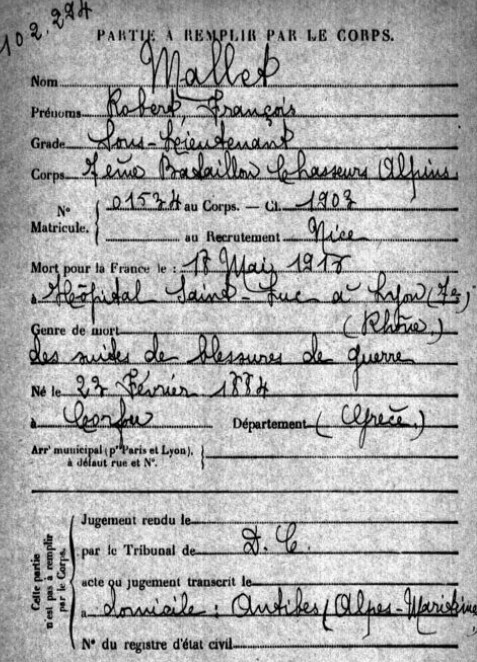 102.274
PARTIE À REMPLIR PAR LE CORPS.
Nom Mallet
Prénoms Robert, François
Grade Sous-Lieutenant
Corps 7ème Bataillon Chasseurs Alpins
N° Matricule. { 01534 au Corps. — Cl. 1903
au Recrutement Nice
Mort pour la France le : 17 Mai 1917
à Hôpital Saint-Luc à Lyon (7e)
Genre de mort (Rhône)
des suites de blessures de guerre
Né le 27 Février 1884
à Corfou Département (Grèce.)
Arrt municipal (pr Paris et Lyon),
à défaut rue et N°.
Cette partie n'est pas à remplir par le Corps.
Jugement rendu le
par le Tribunal de D. C.
acte ou jugement transcrit le
à domicile : Antibes (Alpes-Maritimes
N° du registre d'état civil